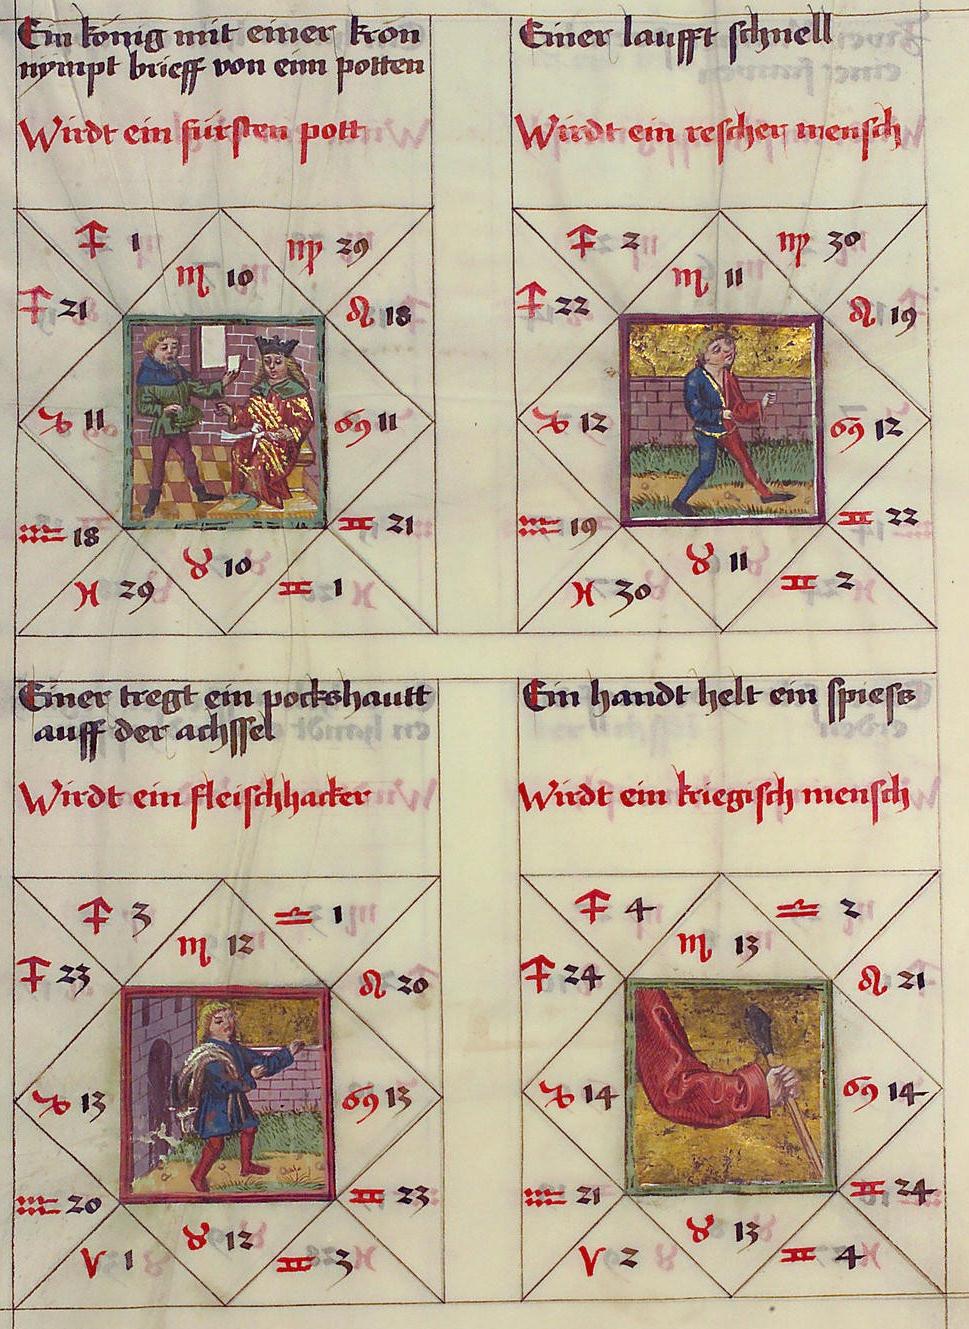 Ein konig mit einer kron
nympt brieff von eim potten
Wirdt ein fürsten pott
♐ 1
♍ 29
♏ 10
♐ 21
♌ 18
♑ 11
♋ 11
♒ 18
♊ 21
♓ 29
♉ 10
♊ 1
Einer laufft schnell
Wirdt ein rescher mensch
♐ 2
♍ 30
♏ 11
♐ 22
♌ 19
♑ 12
♋ 12
♒ 19
♊ 22
♓ 30
♉ 11
♊ 2
Einer tregt ein pockshautt
auff der achssel
Wirdt ein fleischhacker
♐ 3
♎ 1
♏ 12
♐ 23
♌ 20
♑ 13
♋ 13
♒ 20
♊ 23
♈ 1
♉ 12
♊ 3
Ein handt helt ein spiess
Wirdt ein kriegisch mensch
♐ 4
♎ 2
♏ 13
♐ 24
♌ 21
♑ 14
♋ 14
♒ 21
♊ 24
♈ 2
♉ 13
♊ 4